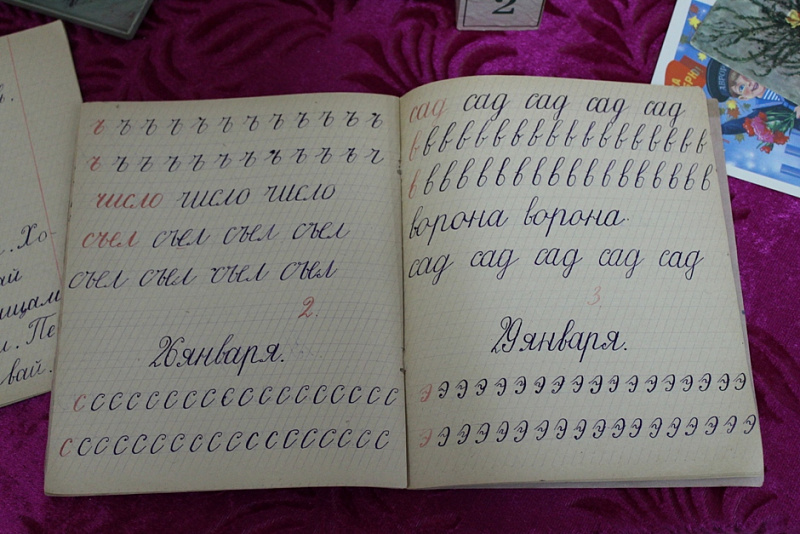 2
. Хо-
ай
ицам
. Пе
вай.
ъ ъ ъ ъ ъ ъ ъ ъ ъ ъ ъ ъ
ъ ъ ъ ъ ъ ъ ъ ъ ъ ъ ъ ъ
число число число
съел съел съел съел
съел съел съел съел
2.
26 января.
с с с с с с с с с с с с с с с с с с
с с с с с с с с с с с с с с с с с с
сад сад сад сад сад
в в в в в в в в в в в в в в в в в в
в в в в в в в в в в в в в в в в в в
ворона ворона.
сад сад сад сад сад
3.
29 января.
э э э э э э э э э э э э э э э э э э
э э э э э э э э э э э э э э э э э э